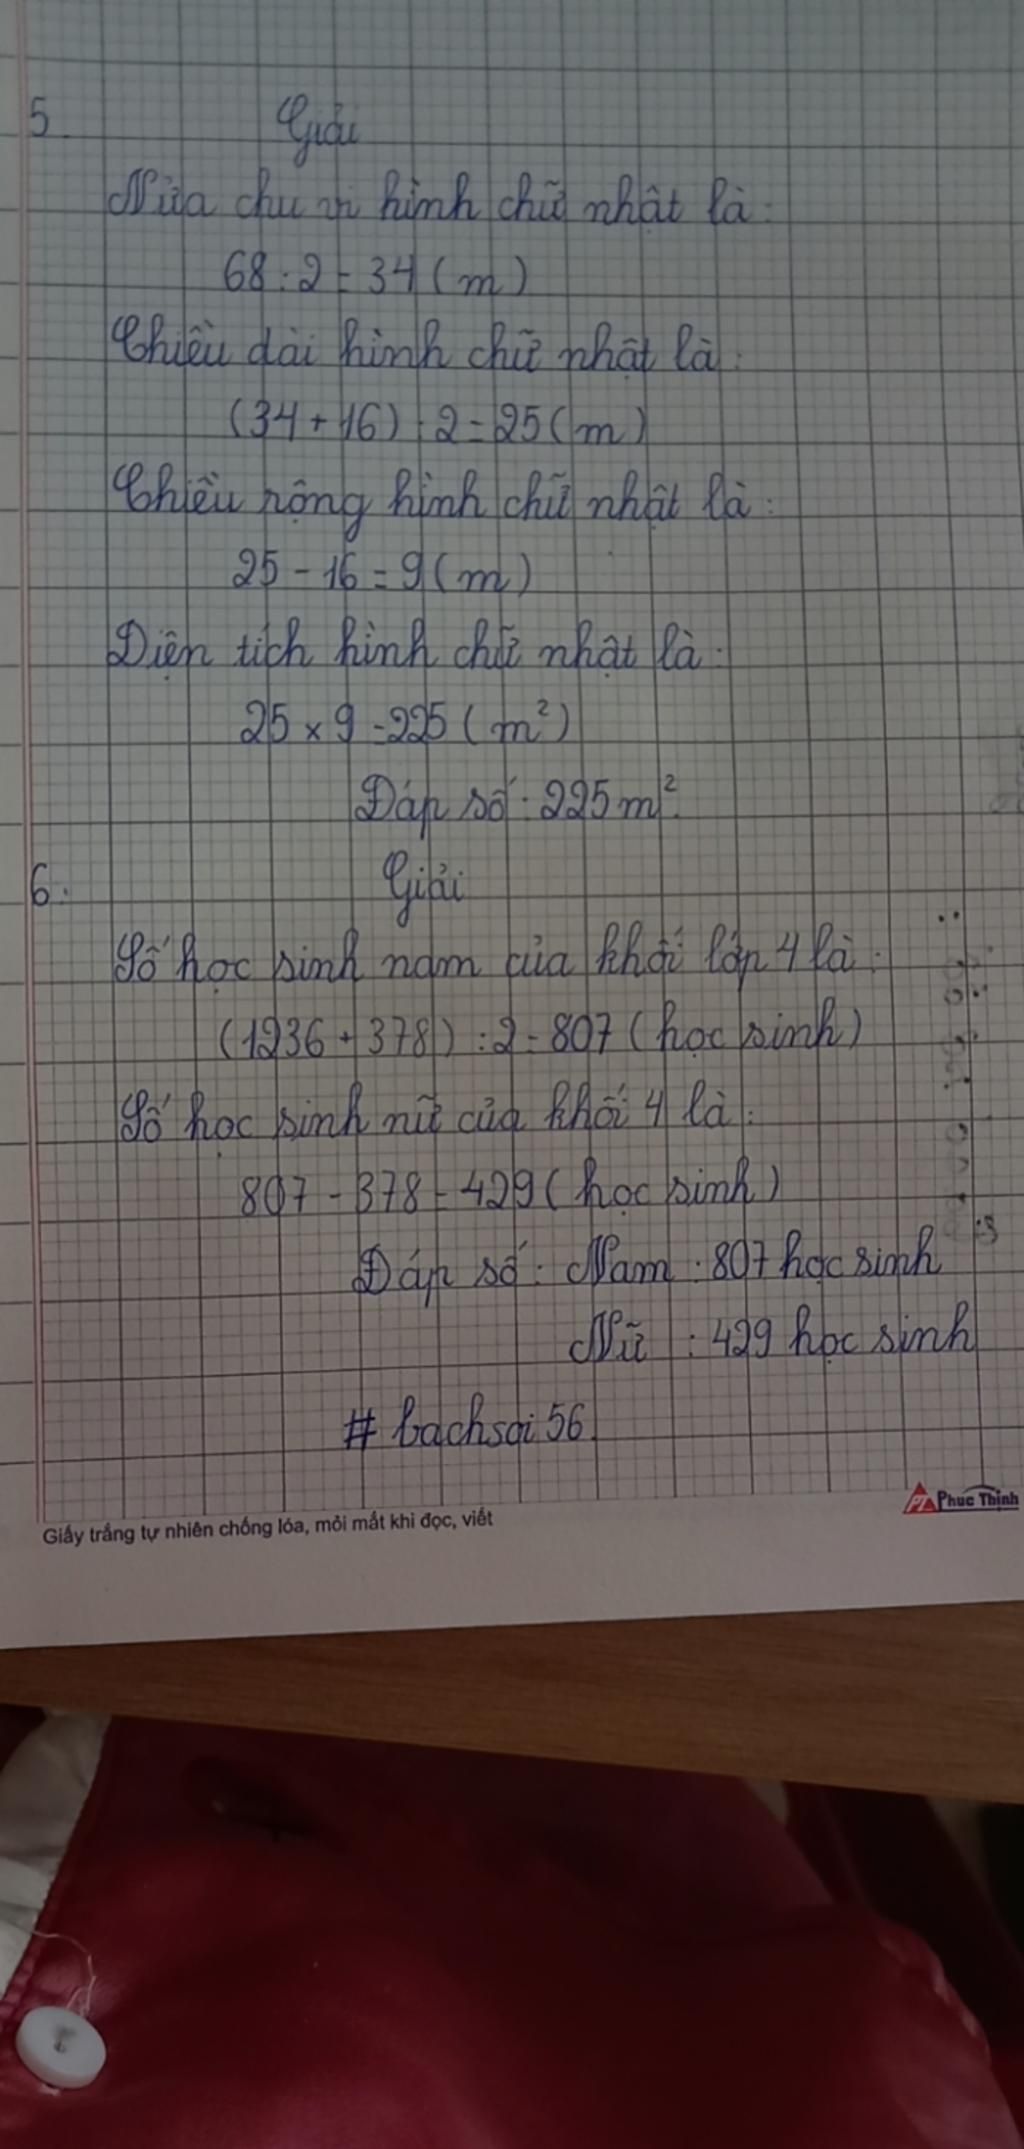 5.
Giải
Nửa chu vi hình chữ nhật là:
68:2=34(m)
Chiều dài hình chữ nhật là:
(34+16):2=25(m)
Chiều rộng hình chữ nhật là:
25-16=9(m)
Diện tích hình chữ nhật là:
25×9=225(m²)
Đáp số: 225m².
6.
Giải
Số học sinh nam của khối lớp 4 là:
(1236+378):2=807(học sinh)
Số học sinh nữ của khối 4 là:
807-378=429(học sinh)
Đáp số: Nam: 807 học sinh
Nữ: 429 học sinh
# bachsoi56
Giấy trắng tự nhiên chống lóa, mỏi mắt khi đọc, viết
PT Phuc Thinh